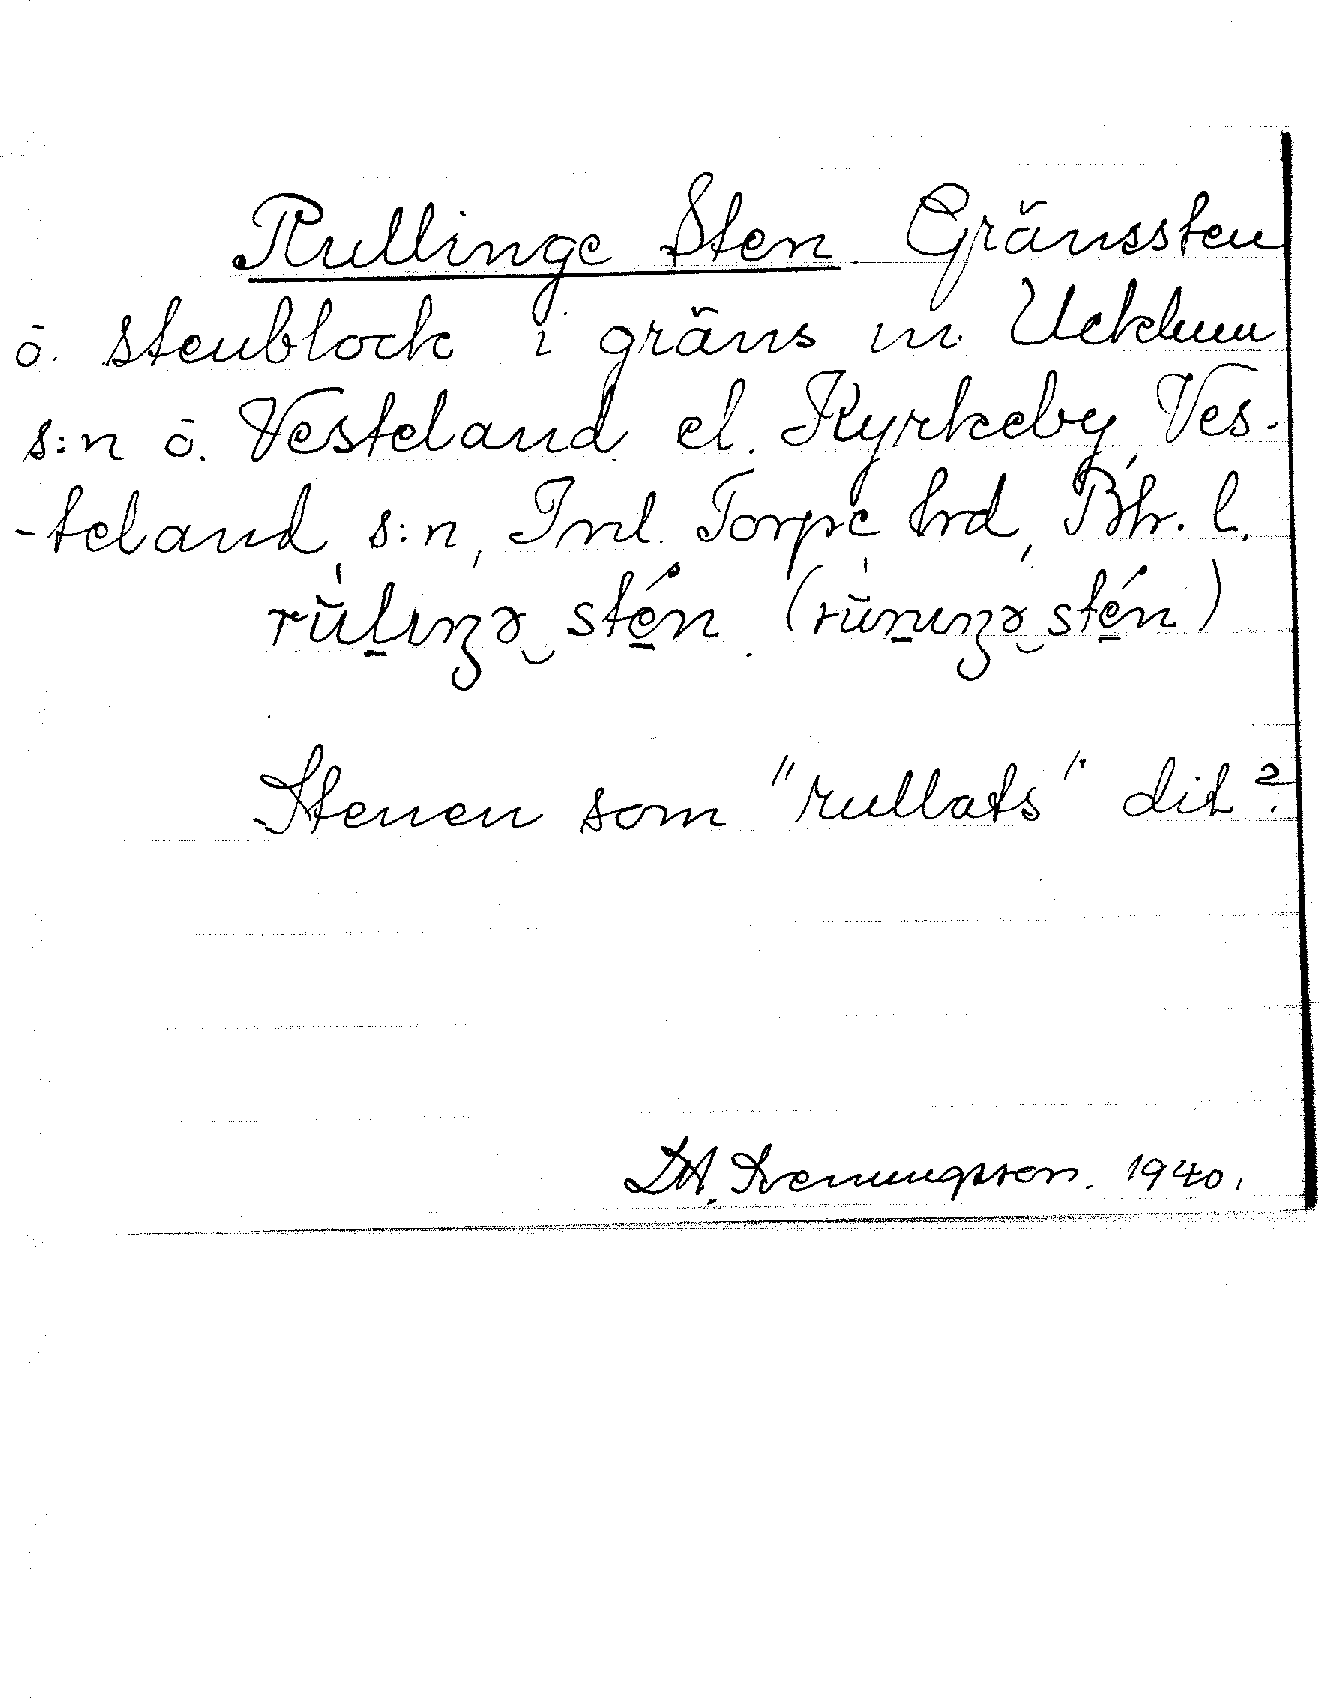 Rullinge Sten Gränssten
o. stenblock i gräns m. Ucklum
s:n o. Vesteland el. Kyrkeby, Ves-
-teland, s:n, Inl. Torpe hrd, Bhr. l.
rùlıŋə sten (rùnıŋə sten)
Stenen som "rullats" dit?
1940.